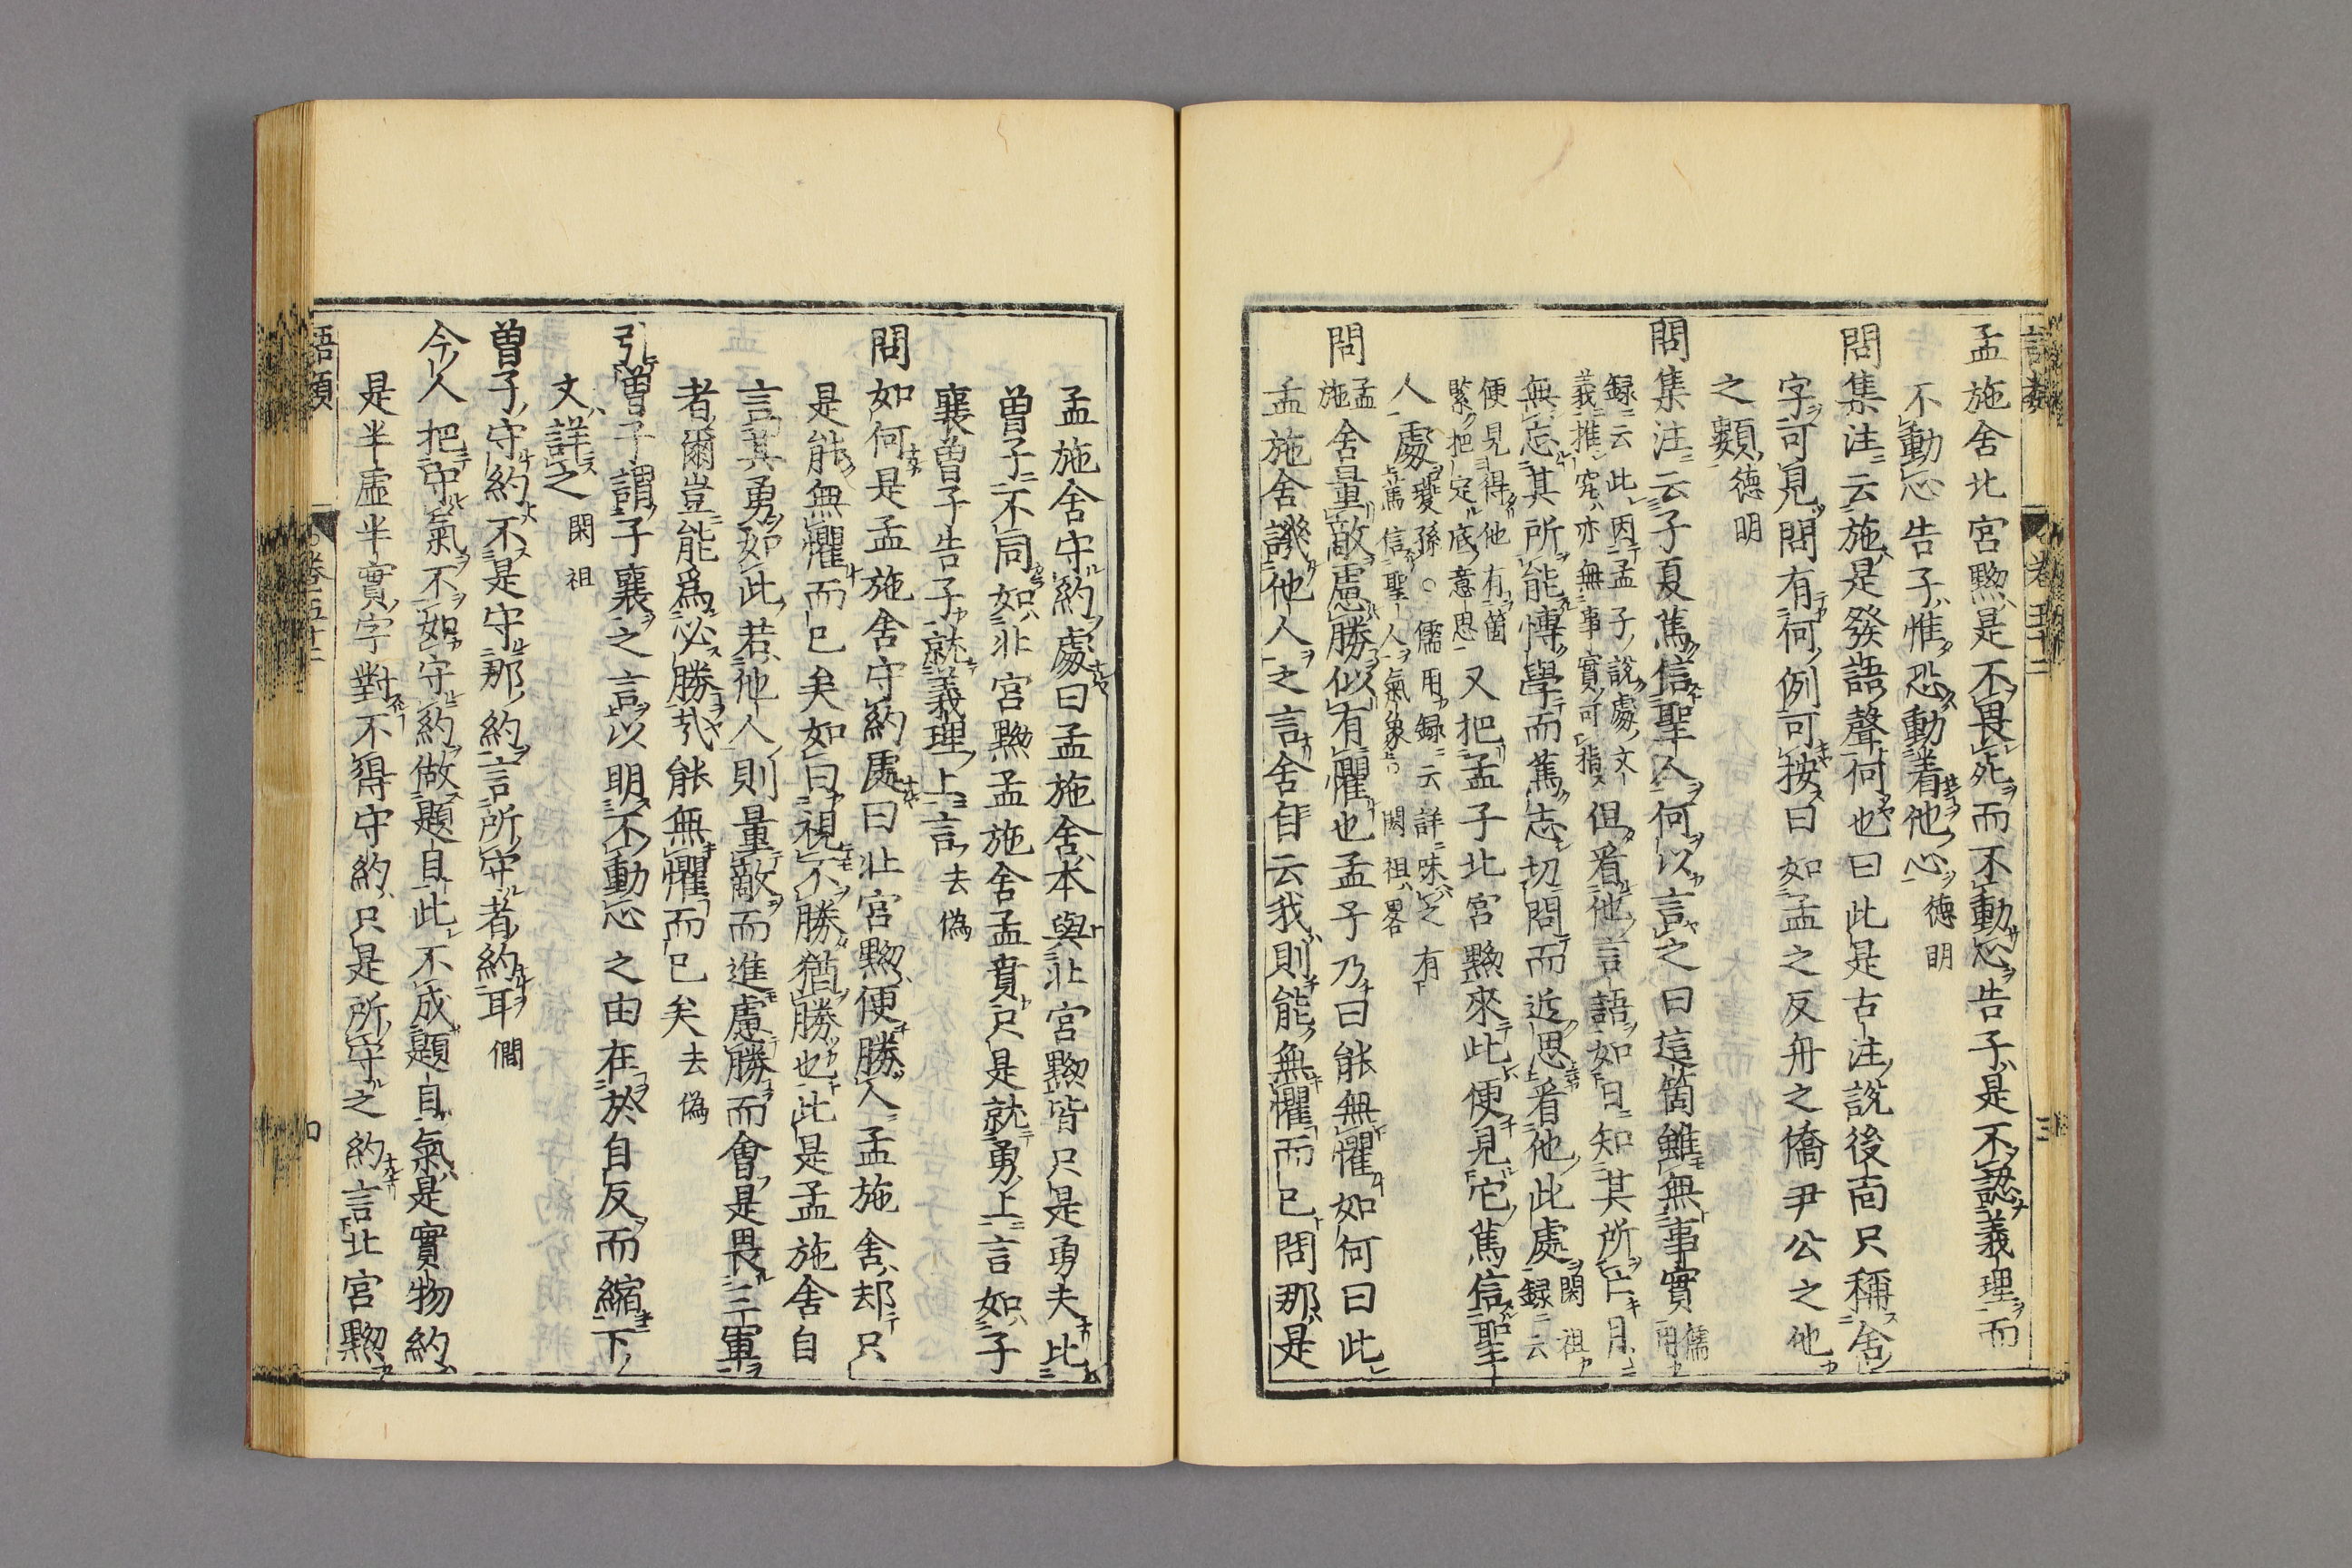 孟施舍北宮黝是不畏死而不動心告子是不認義理而
不動心告子惟恐動着他心德明
問集注云施是發語聲何也曰此是古注說後靣只稱舍
字可見問有何例可按曰如孟之反舟之僑尹公之他
之類德明
問集注云子夏篤信聖人何以言之曰這箇雖無事實儒用
録云此因孟子說處文
義推究亦無事實可指但看他言語如日知其所亡月
無忘其所能愽學而篤志切問而近思看他此處閎祖
録云
便見得他有箇
緊把定底意思又把孟子北宮黝來比便見它篤信聖
人處䕫孫○儒用録云詳味之有
篤信聖人氣象閎祖畧
問孟
施舍量敵慮勝似有懼也孟子乃曰能無懼如何曰此
孟施舍譏他人之言舍自云我則能無懼而已問那是
孟施舍守約處曰孟施舍本與北宮黝皆只是勇夫比
曽子不同如北宮黝孟施舍孟賁只是就勇上言如子
襄曽子告子就義理上言去偽
問如何是孟施舍守約處曰北宮黝便勝人孟施舍却只
是能無懼而已矣如曰視不勝猶勝也此是孟施舍自
言其勇如此若他人則量敵而進慮勝而會是畏三軍
者爾豈能爲必勝㢤能無懼而已矣去偽
引曽子謂子襄之言以明不動心之由在於自反而縮下
文詳之閎祖
曽子守約不是守那約言所守者約耳僩
今人把守氣不如守約做題目此不成題目氣是實物約
是半虛半實字對不得守約只是所守之約言北宮黝
語類
卷五十二
四
卷五十二
三